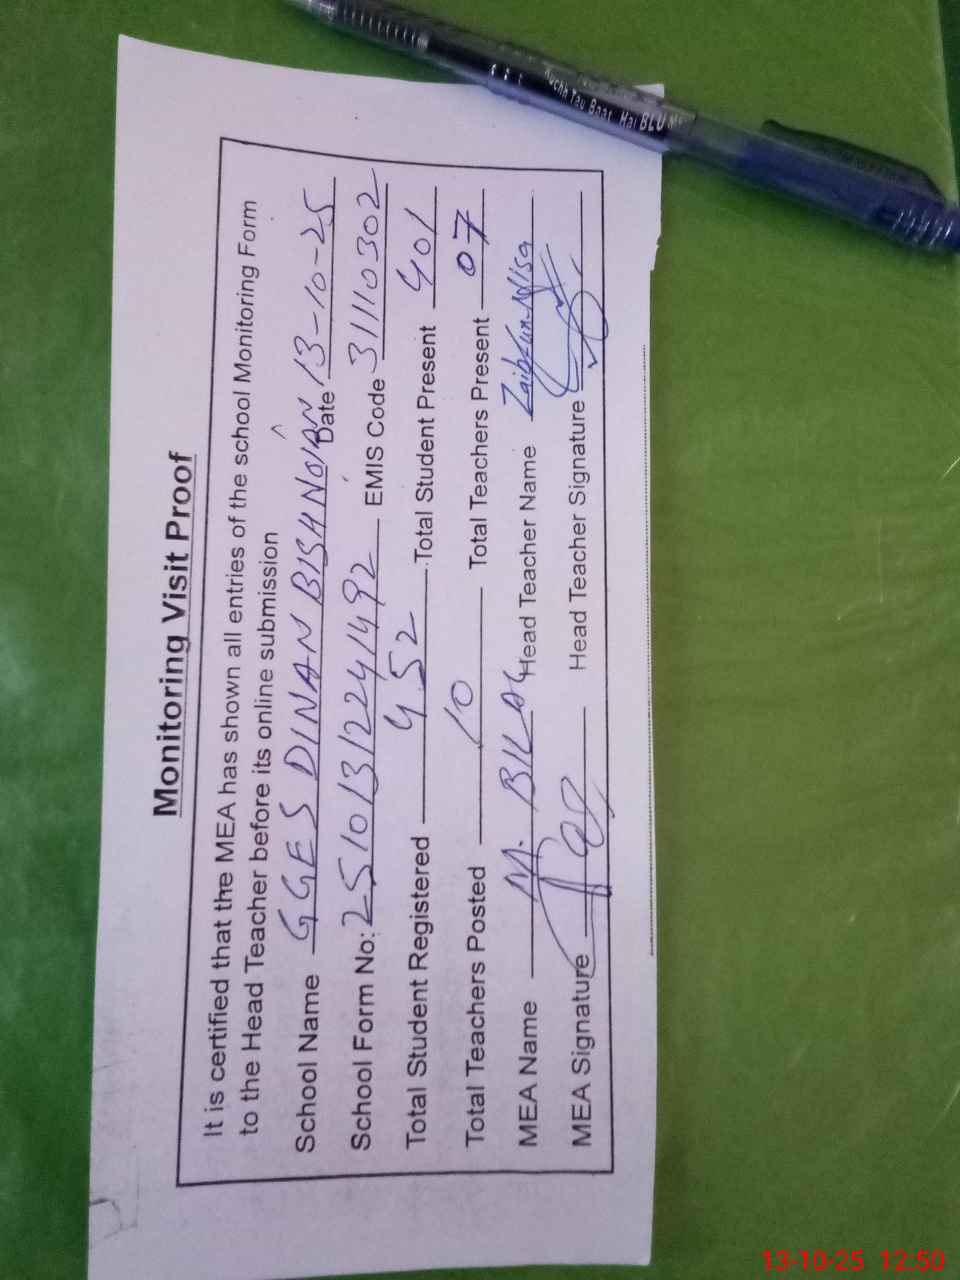 Monitoring Visit Proof
It is certified that the MEA has shown all entries of the school Monitoring Form
to the Head Teacher before its online submission
School Name GGES DINAN BISHNOIAN Date 13-10-25
School Form No: 25101312241492 EMIS Code 31110302
Total Student Registered 452 Total Student Present 401
Total Teachers Posted 10 Total Teachers Present 07
MEA Name M. BILAL Head Teacher Name Zaib-un-Nisa
MEA Signature Head Teacher Signature
Kuchh Tau Baat Hai BLU
13-10-25 12:50